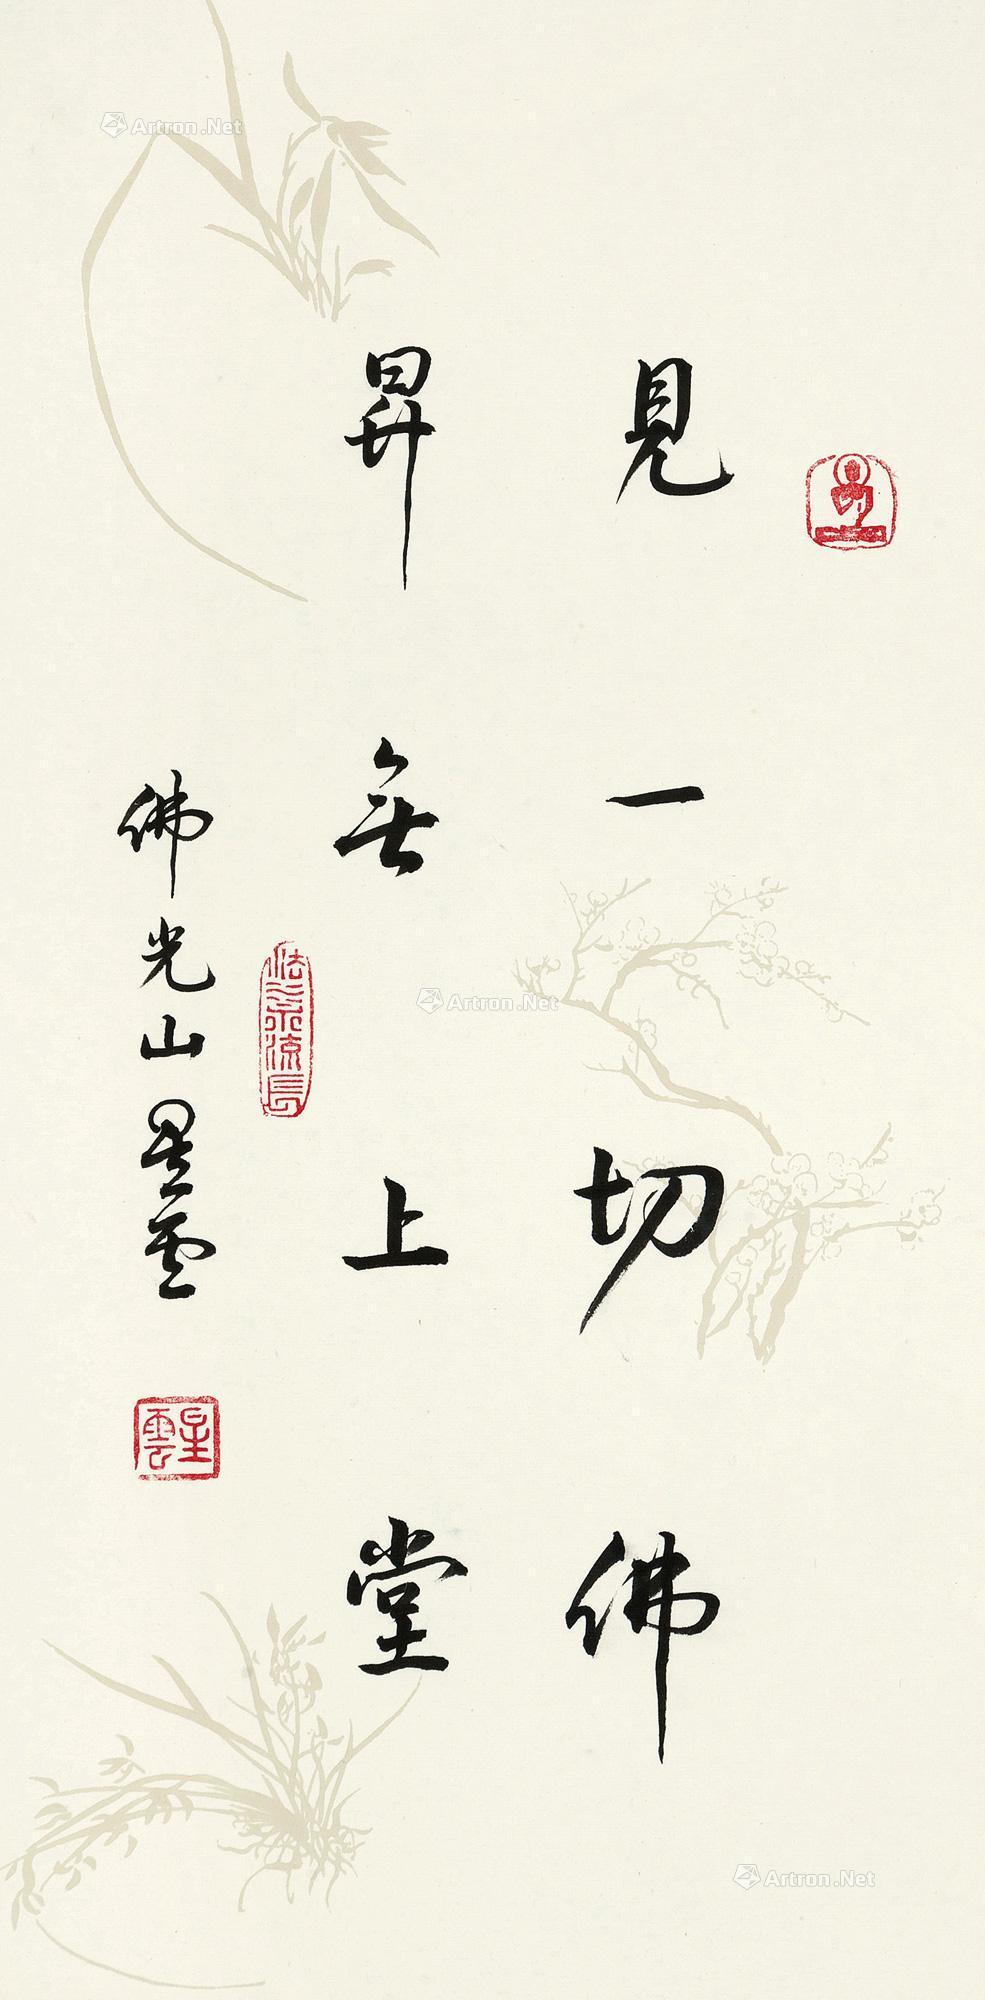 見一切佛
昇無上堂
佛光山星雲
法水流長
星雲
Artron.Net
Artron.Net
Artron.Net